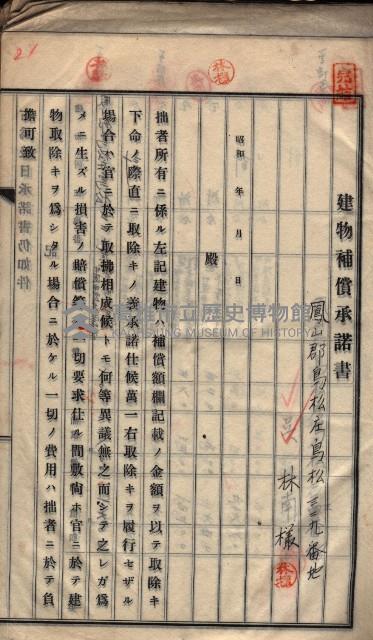 建物補償承諾書
鳳山郡鳥松庄鳥松三三九番地
林 樣
昭和 年 月 日
殿
拙者所有ニ係ル左記建物ハ補償額欄記載ノ金額ヲ以テ取除キ
下命ノ際直ニ取除キノ義承諾仕候萬一右取除キヲ履行セザル
場合ハ官ニ於テ取拂相成候トモ何等異議無之而シテ之レガ爲
メニ生ズル損害ノ賠償等一切要求仕ル間敷尚ホ官ニ於テ建
物取除キヲ爲シタル場合ニ於ケル一切ノ費用ハ拙者ニ於テ負
擔可致
日承諾書仍如件
記
高雄市立歷史博物館
KAOHSIUNG MUSEUM OF HISTORY